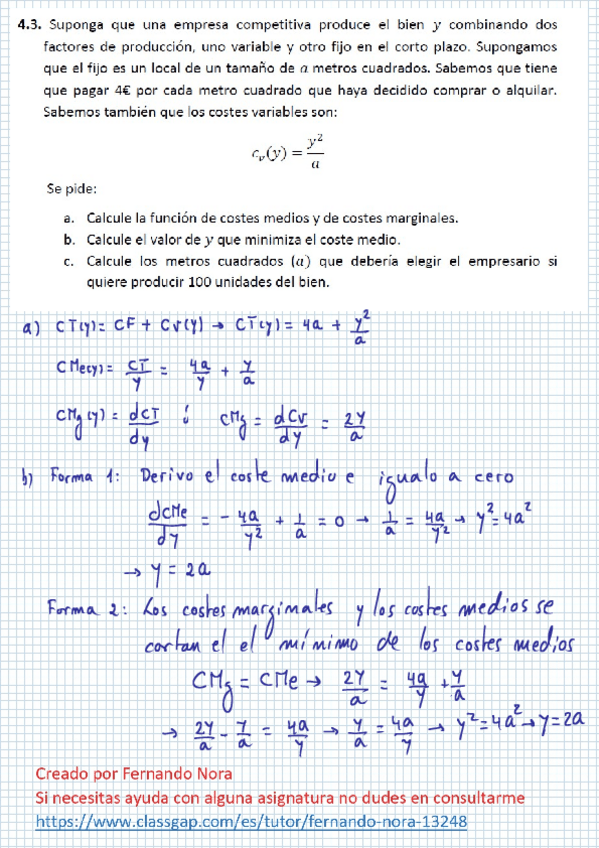 4.3. Suponga que una empresa competitiva produce el bien y combinando dos
factores de producción, uno variable y otro fijo en el corto plazo. Supongamos
que el fijo es un local de un tamaño de a metros cuadrados. Sabemos que tiene
que pagar 4€ por cada metro cuadrado que haya decidido comprar o alquilar.
Sabemos también que los costes variables son:
c_v(y) = y²/a
Se pide:
a. Calcule la función de costes medios y de costes marginales.
b. Calcule el valor de y que minimiza el coste medio.
c. Calcule los metros cuadrados (a) que debería elegir el empresario si
quiere producir 100 unidades del bien.
a) CT(y) = CF + Cv(y) → CT(y) = 4a + y²/a
CMe(y) = CT/y = 4a/y + y/a
CMg(y) = dCT/dy ó CMg = dCv/dy = 2y/a
b) Forma 1: Derivo el coste medio e igualo a cero
dCMe/dy = - 4a/y² + 1/a = 0 → 1/a = 4a/y² → y² = 4a²
→ y = 2a
Forma 2: Los costes marginales y los costes medios se
cortan el el mínimo de los costes medios
CMg = CMe → 2y/a = 4a/y + y/a
→ 2y/a - y/a = 4a/y → y/a = 4a/y → y² = 4a² → y = 2a
Creado por Fernando Nora
Si necesitas ayuda con alguna asignatura no dudes en consultarme
https://www.classgap.com/es/tutor/fernando-nora-13248